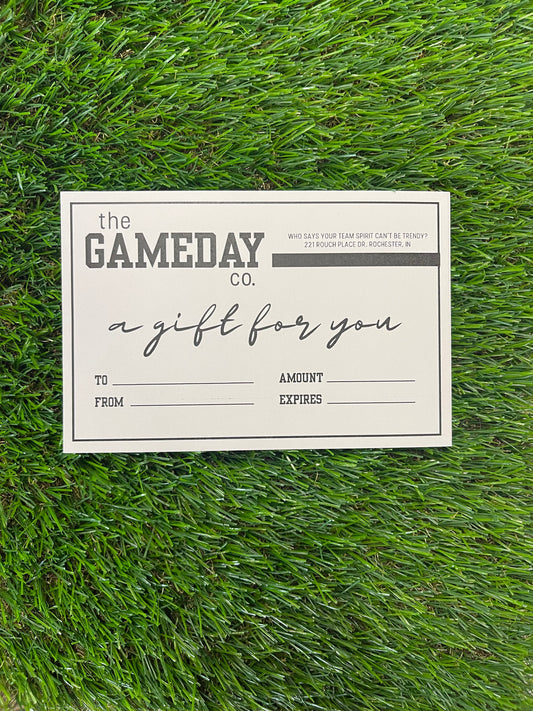 the
GAMEDAY
CO.
WHO SAYS YOUR TEAM SPIRIT CAN'T BE TRENDY?
221 ROUCH PLACE DR. ROCHESTER, IN
a gift for you
TO
FROM
AMOUNT
EXPIRES